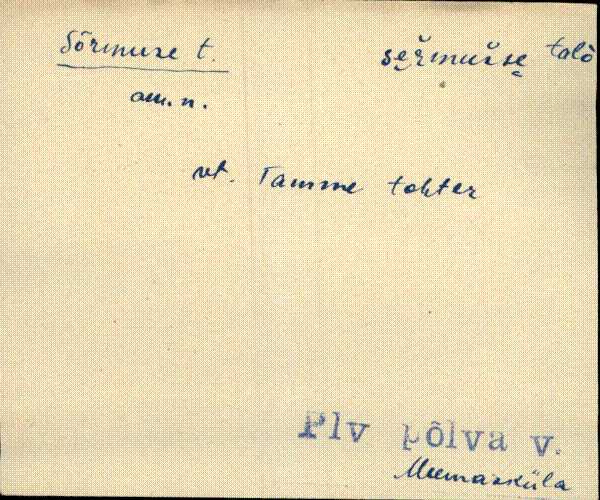 Sõrmuse t. se̮ŕmuśse̮ talò
om. n.
vt. Tamme tohter
Plv põlva v.
Meemasküla